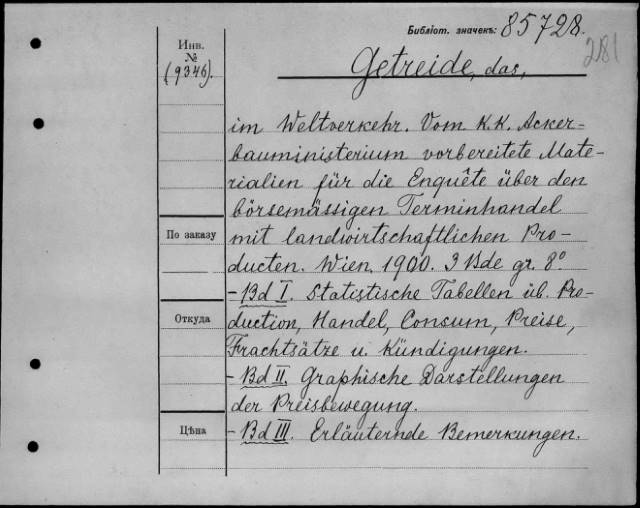 Библіот. значекъ: 85728.
281
Инв.
№
(9346).
Getreide, das,
im Weltverkehr. Vom K.K. Acker-
bauministerium vorbereitete Mate-
rialien für die Enquête über den
börsemässigen Terminhandel
По заказу
mit landwirtschaftlichen Pro-
ducten. Wien, 1900. 3 Bde gr. 8°
- Bd I. Statistische Tabellen üb. Pro-
Откуда
duction, Handel, Consum, Preise,
Frachtsätze u. Kündigungen.
- Bd II. Graphische Darstellungen
der Preisbewegung.
Цѣна
- Bd III. Erläuternde Bemerkungen.